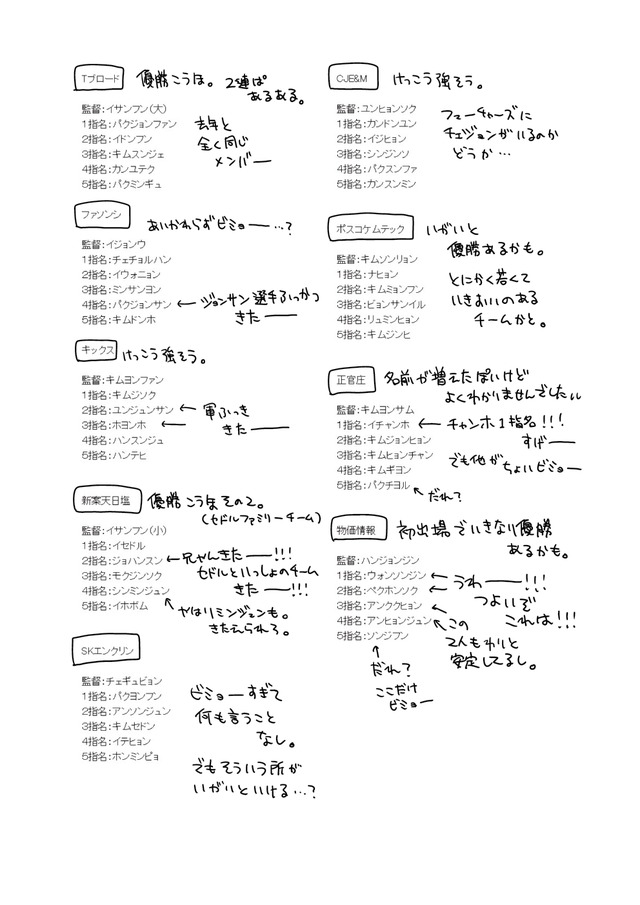 Tブロード
優勝こうほ。2連ぱ
あるある。
監督:イサンフン(大)
1指名:パクジョンファン
2指名:イドンフン
3指名:キムスンジェ
4指名:カンユテク
5指名:パクミンギュ
去年と
全く同じ
メンバー
ファソンシ
あいかわらずビミョー…?
監督:イジョンウ
1指名:チェチョルハン
2指名:イウォニョン
3指名:ミンサンヨン
4指名:パクジョンサン
5指名:キムドンホ
←ジョンサン選手ふっかつ
きたーー
キックス
けっこう強そう。
監督:キムヨンファン
1指名:キムジソク
2指名:ユンジュンサン
3指名:ホヨンホ
4指名:ハンスンジュ
5指名:ハンテヒ
←軍ふっき
←きたーー
新案天日塩
優勝こうほその2。
(セドルファミリーチーム)
監督:イサンフン(小)
1指名:イセドル
2指名:ジョハンスン
3指名:モクジンソク
4指名:シンミンジュン
5指名:イホボム
←兄ゃんきたーー!!!
セドルといっしょのチーム
きたー!!!
やはりミンジュンも。
きたえられろ。
SKエンクリン
監督:チェギュビョン
1指名:パクヨンフン
2指名:アンソンジュン
3指名:キムセドン
4指名:イテヒョン
5指名:ホンミンピョ
ビミョーすぎて
何も言うこと
なし。
でもそういう所が
いがいといける…?
CJE&M
けっこう強そう。
監督:ユンヒョンソク
1指名:カンドンユン
2指名:イジヒョン
3指名:シンジンソ
4指名:パクスンファ
5指名:カンスンミン
フューチャーズに
チェジョンがいるのか
どうか…
ポスコケムテック
いがいと
優勝あるかも。
監督:キムソンリョン
1指名:ナヒョン
2指名:キムミョンフン
3指名:ビョンサンイル
4指名:リュミンヒョン
5指名:キムジンヒ
とにかく若くて
いきおいのある
チームかと。
正官庄
名前が増えたぽいけど
よくわかりませんでした
監督:キムヨンサム
1指名:イチャンホ
2指名:キムジョンヒョン
3指名:キムヒョンチャン
4指名:キムギヨン
5指名:パクチヨル
←チャンホ1指名!!!
すげー
でも他がちょいビミョー
だれ?
物価情報
初出場でいきなり優勝
あるかも。
監督:ハンジョンジン
1指名:ウォンソンジン
2指名:ペクホンソク
3指名:アンククヒョン
4指名:アンヒョンジュン
5指名:ソンジフン
←うわーー!!!
←つよいぞ
これは!!!
←この
2人もわりと
安定してるし。
だれ?
ここだけ
ビミョー